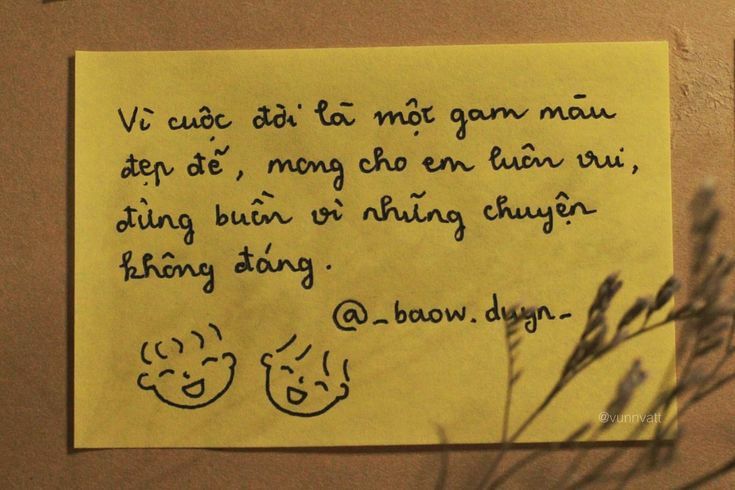 Vì cuộc đời là một gam màu
đẹp đẽ, mong cho em luôn vui,
đừng buồn vì những chuyện
không đáng.
@_baow.duyn_
@vunnvatt